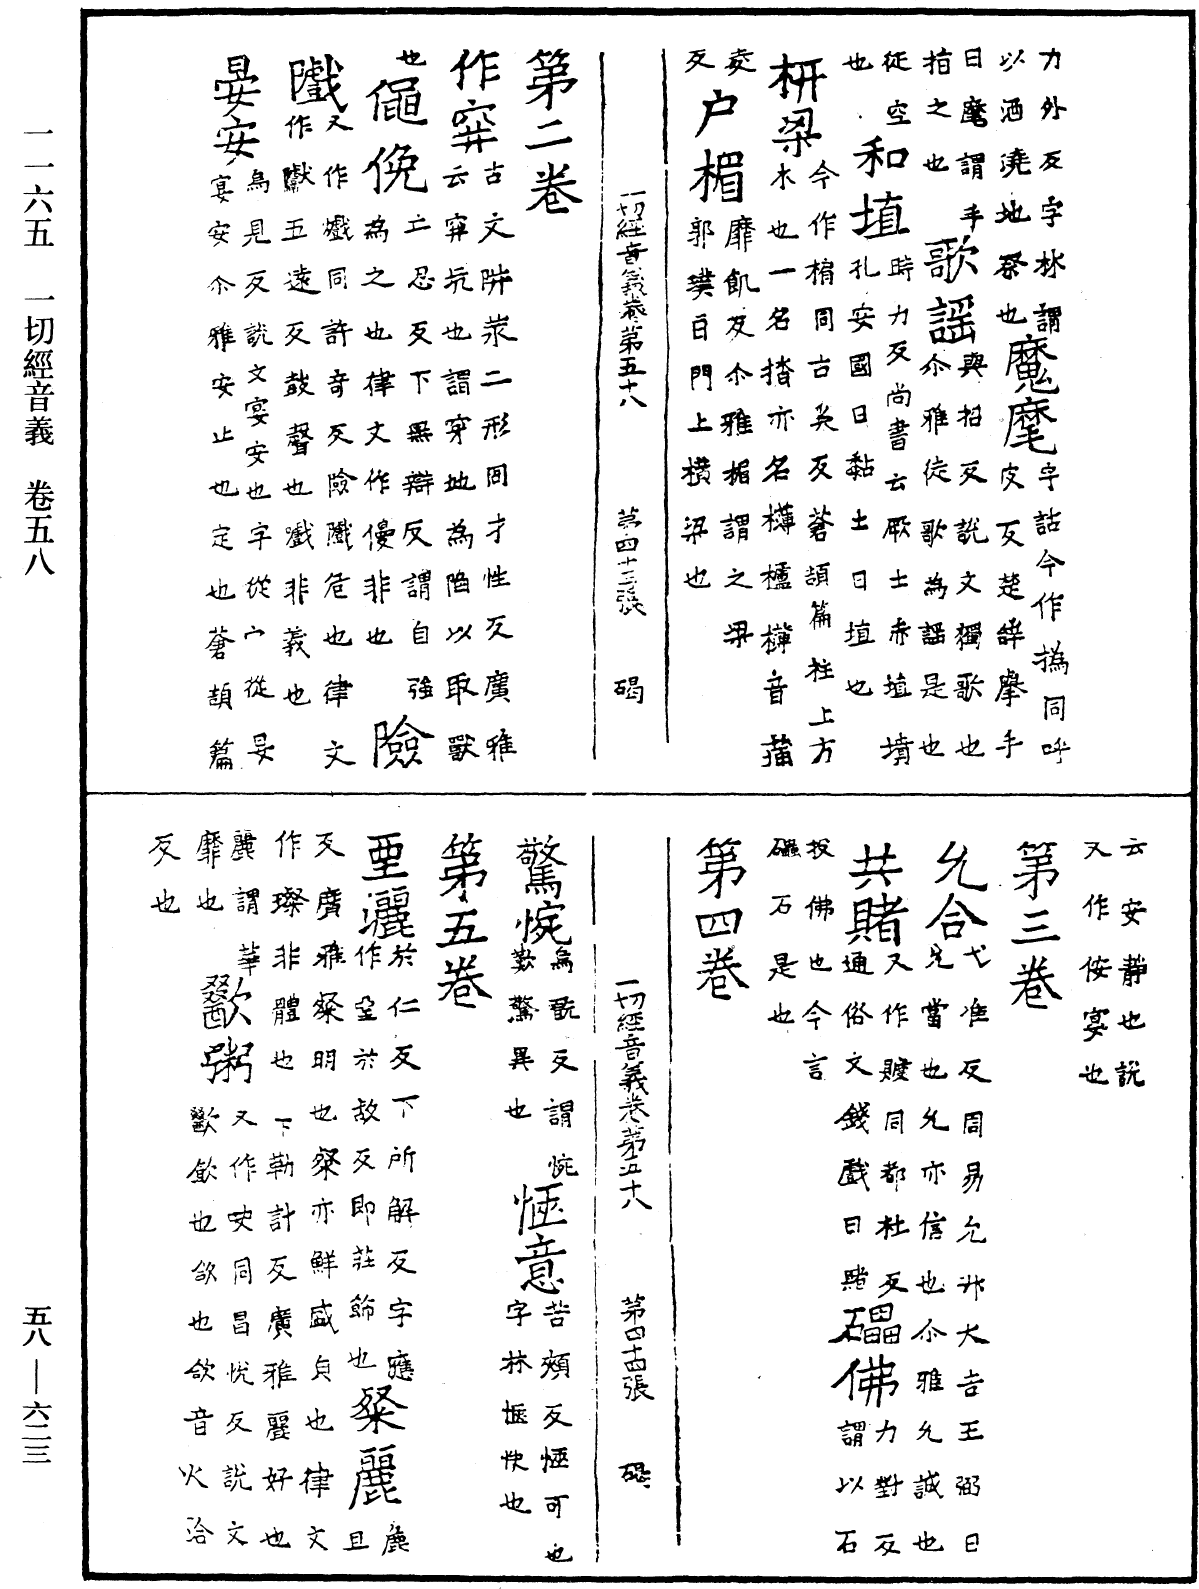 力外反字林謂
以酒澆地祭也 魔麾 字詁今作撝同呼皮反楚辞舉手
曰麾謂手
指之也 歌謡 與招反說文獨歌也尒雅徒歌為謡是也
從空
也 和埴 時力反尚書云厥土赤埴墳孔安國曰黏土曰埴也
枅梁 今作楄同古奚反蒼頡篇柱上方木也一名㭼亦名欂櫨欂音蒲
麥
反 户楣 靡飢反尒雅楣謂之梁郭璞曰門上橫梁也
一切經音義卷第五十八 第四十三張 碣
第二卷
作穽 古文阱汬二形同才性反廣雅云穽坑也謂穿地為陷以取獸
也 僶俛 亡忍反下無辯反謂自強為之也律文作僈非也 險
戲 又作㠣同許奇反險㠣危也律文作獻五遠反鼓聲也戲非義也
晏安 烏見反說文宴安也字從宀從妟宴安尒雅安止也定也蒼頡篇
云安靜也說
又作侒宴也
第三卷
允合 弋准反周易允升大吉王弼曰允當也允亦信也尒雅允誠也
共賭 又作䝾同都杜反通俗文錢戲曰賭 礧佛 力對反謂以石
投佛也今言
礧石是也
第四卷
一切經音義卷第五十八 第四十四張 碣
驚惋 烏翫反謂惋歎驚異也 愜意 苦頰反愜可也字林愜快也
第五卷
垔灑 於仁反下所解反字應作堊於故反即莊飾也 粲麗 麁旦
反廣雅粲明也粲亦鮮盛皃也律文
作璨非體也下勒計反廣雅麗好也
麗謂華
靡也 歠粥 又作㕹同昌悅反說文歠飲也欱也欱音火洽
反也
一一六五 一切經音義 卷五八
五八—六二三